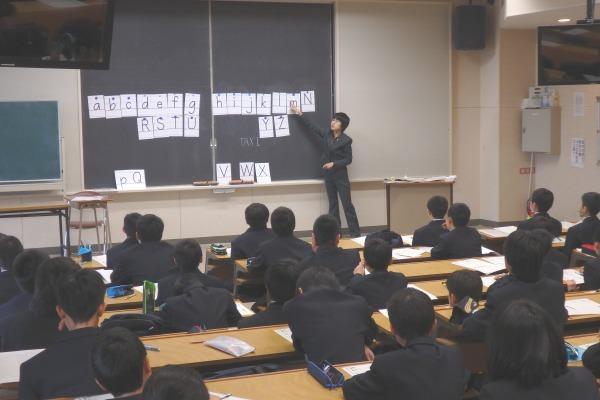 a b c d e f g h i j k l m N
R S T U Y Z
TAXI
p Q V W X